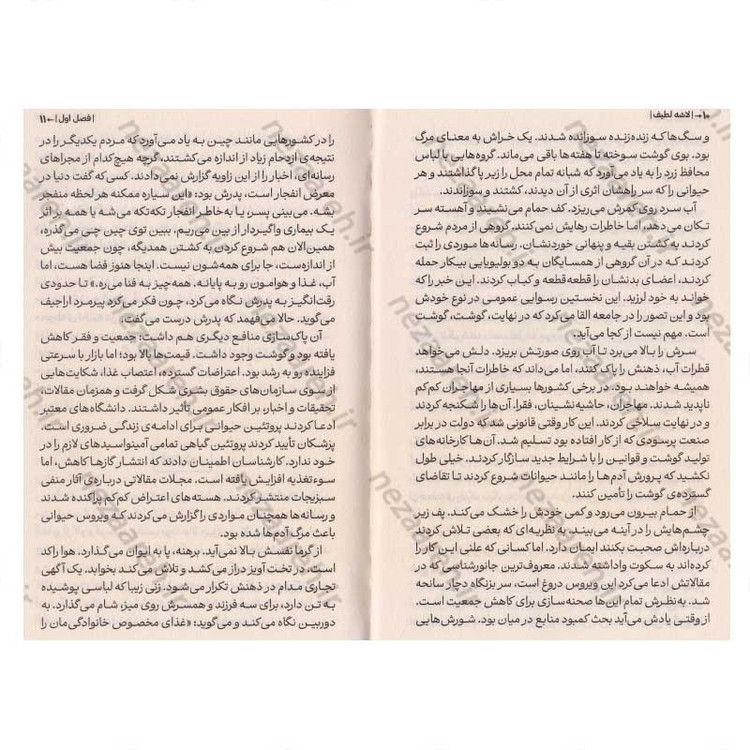 ۱۰ → | لاشه لطیف |
و سگ‌ها که زنده‌زنده سوزانده شدند. یک خراش به معنای مرگ
بود. بوی گوشت سوخته تا هفته‌ها باقی می‌ماند. گروه‌هایی با لباس
محافظ زرد را به یاد می‌آورد که شبانه تمام محل را زیر پا گذاشتند و هر
حیوانی را که سر راهشان اثری از آن دیدند، کشتند و سوزاندند.
آب سرد روی کمرش می‌ریزد. کف حمام می‌نشیند و آهسته سر
تکان می‌دهد، اما خاطرات رهایش نمی‌کنند. گروهی از مردم شروع
کردند به کشتن بقیه و پنهانی خوردنشان. رسانه‌ها موردی را ثبت
کردند که در آن گروهی از همسایگان به دو بولیویایی بیکار حمله
کردند، اعضای بدنشان را قطعه‌قطعه و کباب کردند. این خبر را که
خواند به خود لرزید. این نخستین رسوایی عمومی در نوع خودش
بود و این تصور را در جامعه القا می‌کرد که در نهایت، گوشت، گوشت
است. مهم نیست از کجا می‌آید.
سرش را بالا می‌برد تا آب روی صورتش بریزد. دلش می‌خواهد
قطرات آب، ذهنش را پاک کنند، اما می‌داند که خاطرات آنجا هستند،
همیشه خواهند بود. در برخی کشورها بسیاری از مهاجران کم‌کم
ناپدید شدند. مهاجران، حاشیه‌نشینان، فقرا. آن‌ها را شکنجه کردند
و در نهایت سلاخی کردند. این کار وقتی قانونی شد که دولت در برابر
صنعت پرسودی که از کار افتاده بود تسلیم شد. آن‌ها کارخانه‌های
تولید گوشت و قوانین را با شرایط جدید سازگار کردند. خیلی طول
نکشید که پرورش آدم‌ها را مانند حیوانات شروع کردند تا تقاضای
گسترده‌ی گوشت را تأمین کنند.
از حمام بیرون می‌رود و کمی خودش را خشک می‌کند. پف زیر
چشم‌هایش را در آینه می‌بیند. به نظریه‌ای که بعضی تلاش کردند
درباره‌اش صحبت بکنند ایمان دارد. اما کسانی که علنی این کار را
کرده‌اند به سکوت واداشته شدند. معروف‌ترین جانورشناسی که در
مقالاتش ادعا می‌کرد این ویروس دروغ است، سر بزنگاه دچار سانحه
شد. به‌نظرش تمام این‌ها صحنه‌سازی برای کاهش جمعیت است.
از وقتی یادش می‌آید بحث کمبود منابع در میان بود. شورش‌هایی
| فصل اول | ← ۱۱
را در کشورهایی مانند چین به یاد می‌آورد که مردم یکدیگر را در
نتیجه‌ی ازدحام زیاد از اندازه می‌کشتند، گرچه هیچ‌کدام از مجراهای
رسانه‌ای، اخبار را از این زاویه گزارش نمی‌دادند. کسی که گفت دنیا در
معرض انفجار است، پدرش بود: «این سیاره ممکنه هر لحظه منفجر
بشه. می‌بینی پسر، یا به‌خاطر انفجار تکه‌تکه می‌شه یا همه بر اثر
یک بیماری واگیردار از بین می‌ریم. ببین توی چین چی می‌گذره،
همین‌الان هم شروع کردن به کشتن همدیگه، چون جمعیت بیش
از اندازه‌ست، جا برای همه‌شون نیست. اینجا هنوز فضا هست، اما
آب، غذا و هوامون رو به پایانه. همه‌چیز به فنا می‌ره.» تا حدودی
رقت‌انگیز به پدرش نگاه می‌کرد، چون فکر می‌کرد پیرمرد اراجیف
می‌گوید. حالا می‌فهمد که پدرش درست می‌گفت.
آن پاک‌سازی منافع دیگری هم داشت: جمعیت و فقر کاهش
یافته بود و گوشت وجود داشت. قیمت‌ها بالا بود؛ اما بازار با سرعتی
فزاینده رو به رشد بود. اعتراضات گسترده، اعتصاب غذا، شکایت‌هایی
از سوی سازمان‌های حقوق بشری شکل گرفت و همزمان مقالات،
تحقیقات و اخبار بر افکار عمومی تأثیر داشتند. دانشگاه‌های معتبر
ادعا کردند پروتئین حیوانی برای ادامه‌ی زندگی ضروری است.
پزشکان تأیید کردند پروتئین گیاهی تمامی آمینواسیدهای لازم را در
خود ندارد. کارشناسان اطمینان دادند که انتشار گازها کاهش، اما
سوءتغذیه افزایش یافته است. مجلات مقالاتی درباره‌ی آثار منفی
سبزیجات منتشر کردند. هسته‌های اعتراض کم‌کم پراکنده شدند
و رسانه‌ها همچنان مواردی را گزارش می‌کردند که ویروس حیوانی
باعث مرگ آدم‌ها شده بود.
از گرما نفسش بالا نمی‌آید. برهنه، پا به ایوان می‌گذارد. هوا راکد
است، در تخت آویز دراز می‌کشد و تلاش می‌کند بخوابد. یک آگهی
تجاری مدام در ذهنش تکرار می‌شود. زنی زیبا که لباسی پوشیده
به تن دارد، برای سه فرزند و همسرش روی میز، شام می‌گذارد. به
دوربین نگاه می‌کند و می‌گوید: «غذای مخصوص خانوادگی‌مان را
nezaaseh.ir